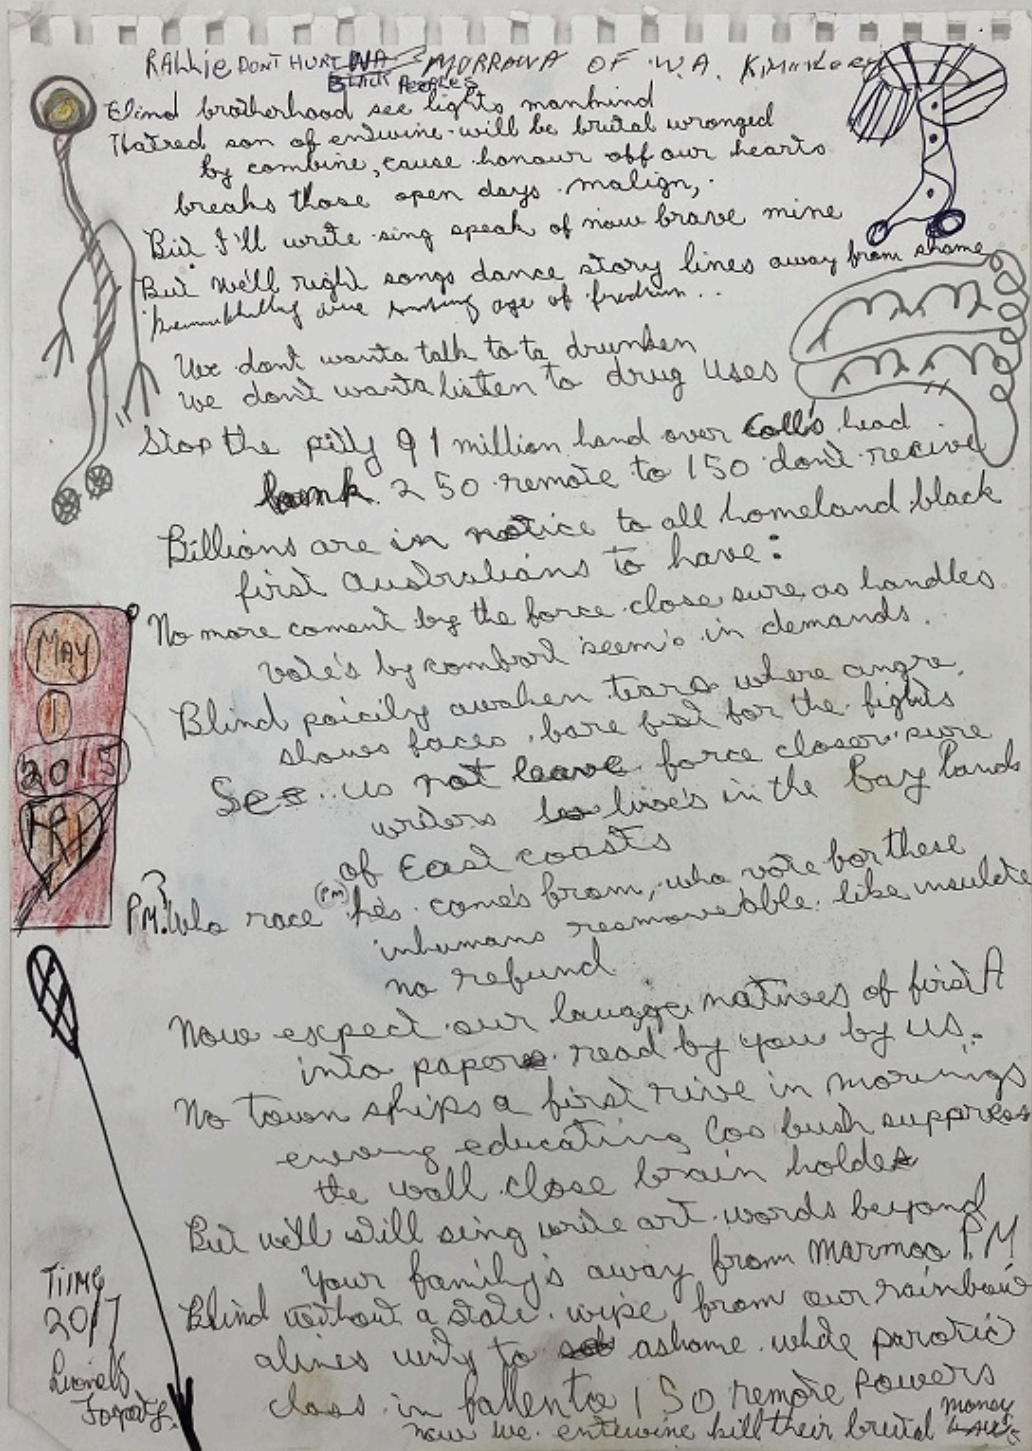 RALLie DONT HURT MORRAWA OF W.A. Kimberley
BLACK PeopLes
Blind brotherhood see lights mankind
Hatred son of entwine will be brutal wronged
by combine, cause honour off our hearts
breaks those open days malign,
But I'll write sing speak of now brave mine
But We'll right songs dance story lines away from shame
age of
We dont wanta talk to ta drunken
we don't wanta listen to drug uses
Stop the pitty 91 million hand over Coll's head
bank 250 remote to 150 don't recive
Billions are in notice to all homeland black
first Australians to have:
No more coment by the force close sure as handles
vote's by combart seem's in demands.
Blind paicily awaken tears where angre,
shows faces, bare fist for the fights
See us not leave force closer sure
writers live's in the bay lands
of East coasts
P.M. Who race (PM) he's come's from, who vote for these
inhumans resmoveabble like insulete
no refund
Now expect our lauage natives of first A
into papers read by you by us.
No town ships a first rive in mornings
educating Cos bush suppress
the wall close brain holdes
But we'll still sing write art words beyond
Your family's away from marmoo P.M
Blind without a state wipe from our rainbow
alines unty to ashame while parotic
class in fallen to 150 remote Powers
now we entewine kill their brutal money
LAWS
MAY
1
2015
TIIME
2017
Lionel
Fogarty.